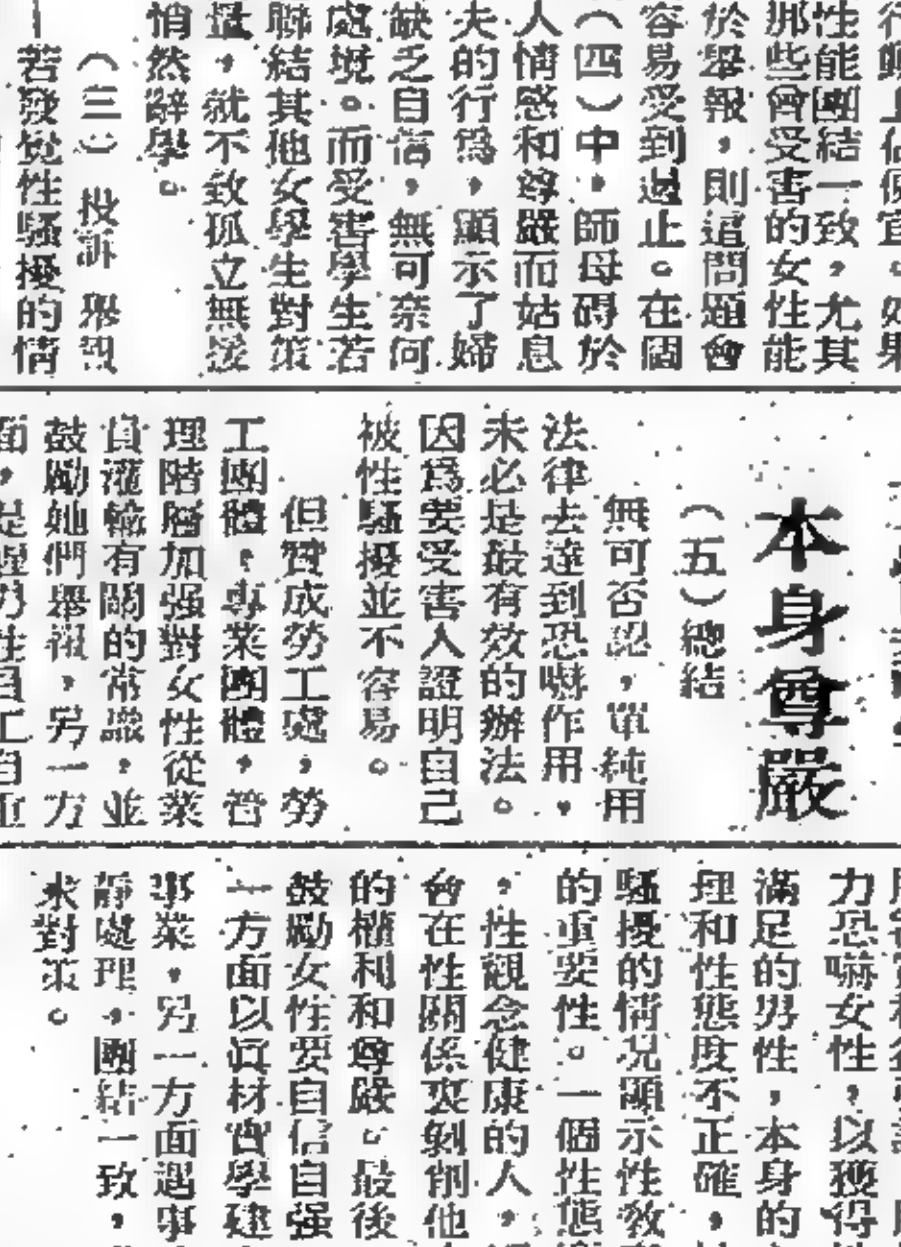 性能團結一致，尤其
那些曾受害的女性能
於舉報，則這問題會
容易受到遏止。在個
（四）中，師母碍於
人情感和尊嚴而姑息
夫的行爲，顯示了婦
缺乏自信，無可奈何
處境。而受害學生若
聯結其他女學生對策
量，就不致孤立無援
悄然辭學。
（三）投訴 舉報
若發覺性騷擾的情
本身尊嚴
（五）總結
無可否認，單純用
法律去達到恐嚇作用，
未必是最有效的辦法。
因爲要受害人證明自己
被性騷擾並不容易。
但贊成勞工處，勞
工團體，專業團體，管
理階層加强對女性從業
員灌輸有關的常識，並
鼓勵她們舉報，另一方
力恐嚇女性，以獲得
滿足的男性，本身的
理和性態度不正確，
騷擾的情况顯示性教
的重要性。一個性態
，性觀念健康的人，
會在性關係衷剝削他
的權利和尊嚴。最後
鼓勵女性要自信自强
一方面以眞材實學建
事業，另一方面遇事
靜處理，團結一致，
求對策。